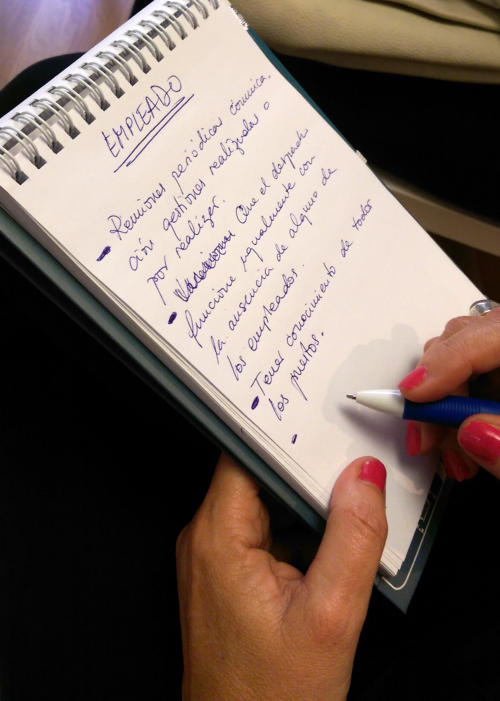 EMPLEADO
- Reuniones periódicas comunica-
ción gestiones realizadas o
por realizar.
• Que el despach
funcione igualmente con
la ausencia de alguno de
los empleados.
• Tener conocimiento de todos
los puestos.
-